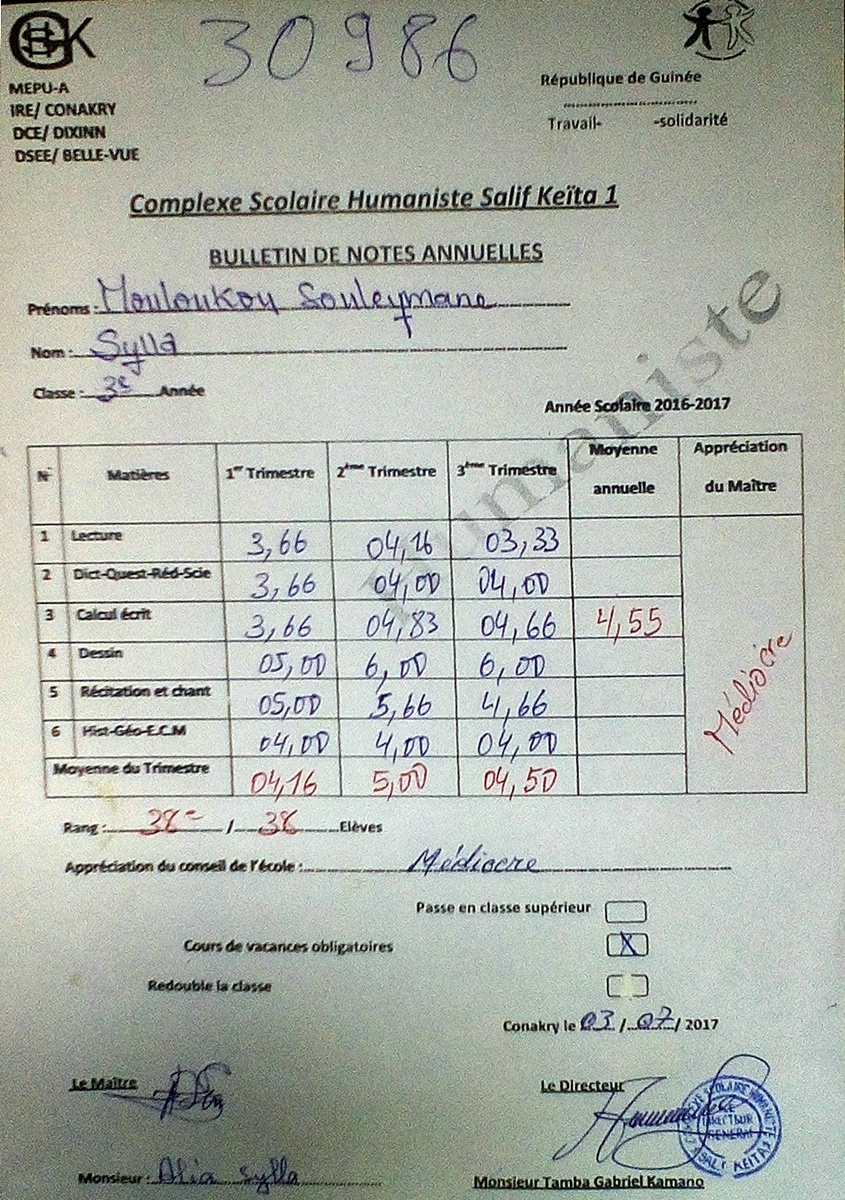 30986
MEPU-A
IRE/ CONAKRY
DCE/ DIXINN
DSEE/ BELLE-VUE
République de Guinée
Travail- -solidarité
Complexe Scolaire Humaniste Salif Keïta 1
BULLETIN DE NOTES ANNUELLES
Prénoms : Mouloukou Souleymane
Nom : Sylla
Classe : 3e Année
Année Scolaire 2016-2017
Humaniste
N° Matières 1er Trimestre 2ème Trimestre 3ème Trimestre Moyenne annuelle Appréciation du Maître
1 Lecture 3,66 04,16 03,33
2 Dict-Quest-Réd-Scie 3,66 04,00 04,00
3 Calcul écrit 3,66 04,83 04,66 4,55
4 Dessin 05,00 6,00 6,00
5 Récitation et chant 05,00 5,66 4,66
6 Hist-Géo-E.C.M 04,00 4,00 04,00
Médiocre
Moyenne du Trimestre 04,16 5,00 04,50
Rang : 38e / 38 Elèves
Appréciation du conseil de l'école : Médiocre
Passe en classe supérieur
Cours de vacances obligatoires X
Redouble la classe
Conakry le 03 / 07 / 2017
Le Maître
Le Directeur
COMPLEXE SCOLAIRE HUMANISTE SALIF KEITA
DIRECTEUR
GENERAL
Monsieur : Alia Sylla
Monsieur Tamba Gabriel Kamano